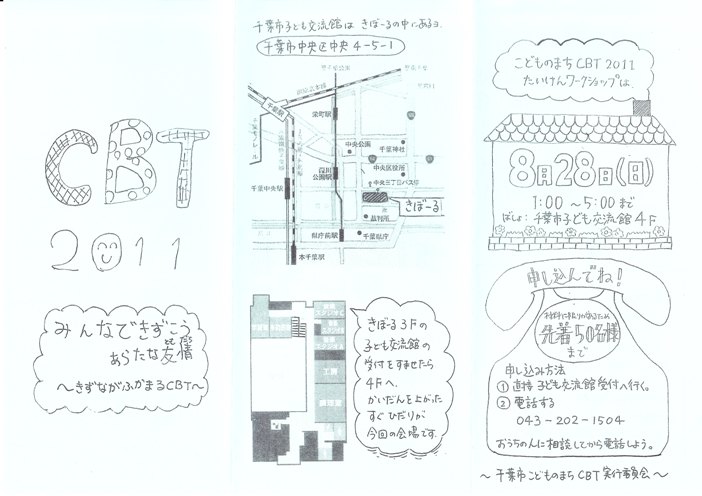 CBT
2011
みんなできずこう
あらたな友情
〜きずながふかまるCBT〜
千葉市子ども交流館は きぼーるの中にあるヨ.
千葉市中央区中央 4-5-1
千葉公園
千葉駅
栄町駅
中央公園
千葉神社
中央区役所
葭川公園駅
中央三丁目バス停
千葉中央駅
きぼーる
裁判所
県庁前駅
千葉県庁
本千葉駅
スタジオC
スタジオB
スタジオA
工房
調理室
きぼーる3Fの
子ども交流館の
受付をすませたら
4Fへ.
かいだんを上がった
すぐひだりが
今回の会場です.
こどものまちCBT2011
たいけんワークショップは.
8月28日(日)
1:00 〜5:00まで
ばしょ: 千葉市子ども交流館4F
申し込んでね!
材料に限りがあるため
先着50名様
まで
申し込み方法
① 直接 子ども交流館受付へ行く。
② 電話する
043-202-1504
おうちの人に相談してから電話しよう。
〜千葉市こどものまちCBT実行委員会〜